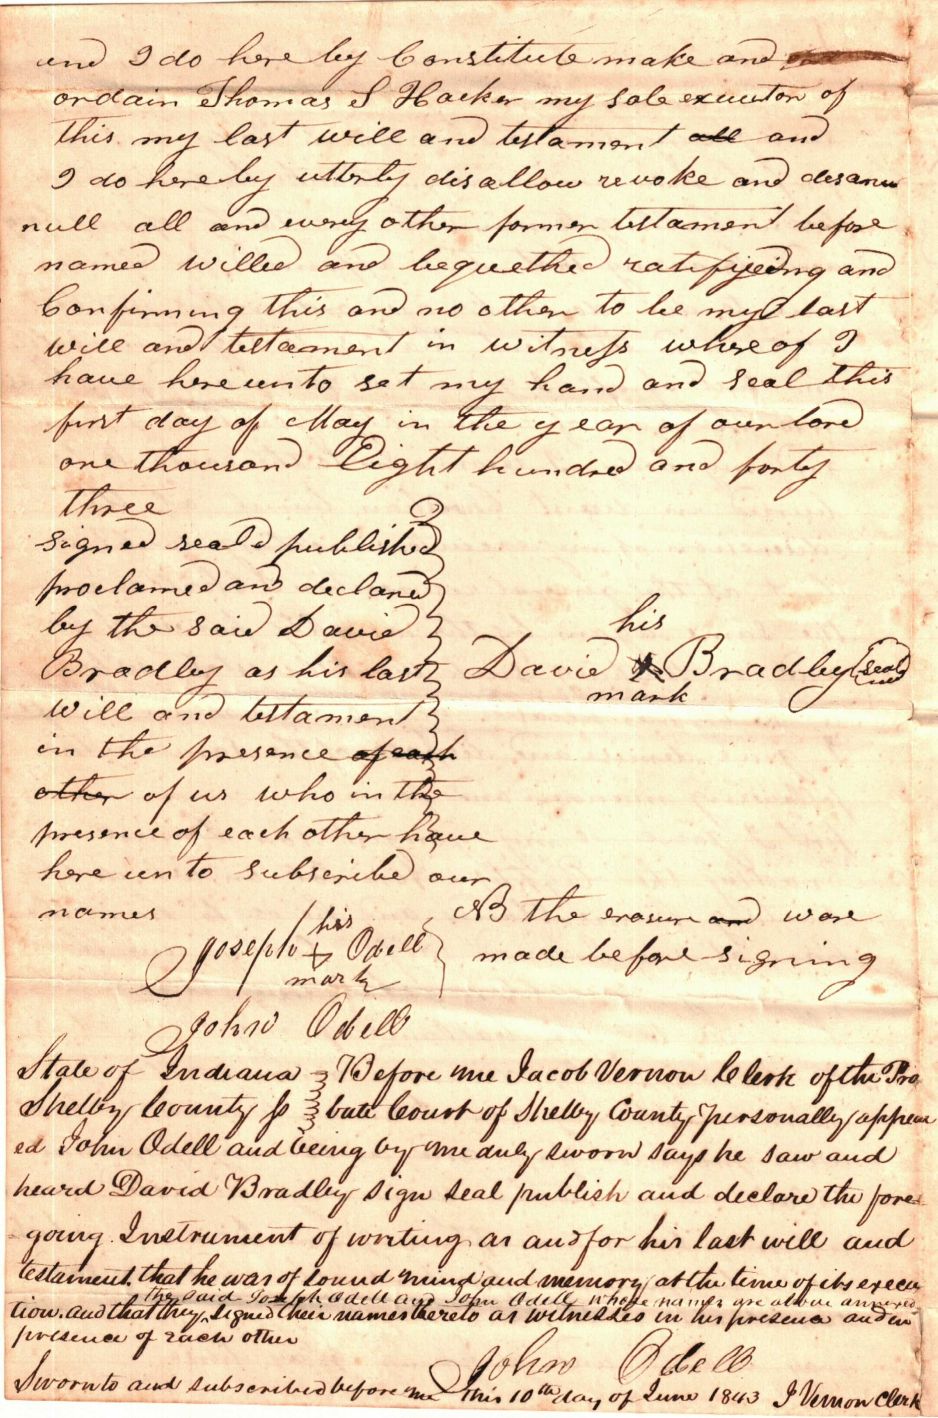 and I do here by Constitute make and
ordain Thomas S Hacker my sole executor of
this my last will and testament all and
I do here by utterly disallow revoke and disanu
null all and every other former testament before
named willed and bequethed ratifyeing and
Confirming this and no other to be my last
will and testament in witness where of I
have here unto set my hand and seal this
first day of May in the year of our lord
one thousand Eight hundred and forty
three
signed seald published
proclamed and declared
by the said David
Bradley as his last
will and testament
in the presence of each
other of us who in the
presence of each other have
here unto subscribed our
names
his
David X Bradley seal
mark
his
Joseph + Odell
mark
John Odell
NB the erasure and ware
made before signing
State of Indiana Before me Jacob Vernon Clerk of the Pro
Shelby County Ss bate Court of Shelby County personally appear
ed John Odell and being by me duly sworn says he saw and
heard David Bradley sign seal publish and declare the fore
going Instrument of writing as and for his last will and
testament that he was of sound mind and memory at the time of its execu
the said Joseph Odell and John Odell whose names are above annexed
tion and that they signed their names thereto as witnesses in his presence and in
presence of each other
John Odell
Sworn to and subscribed before me this 10th day of June 1843 J Vernon Clerk